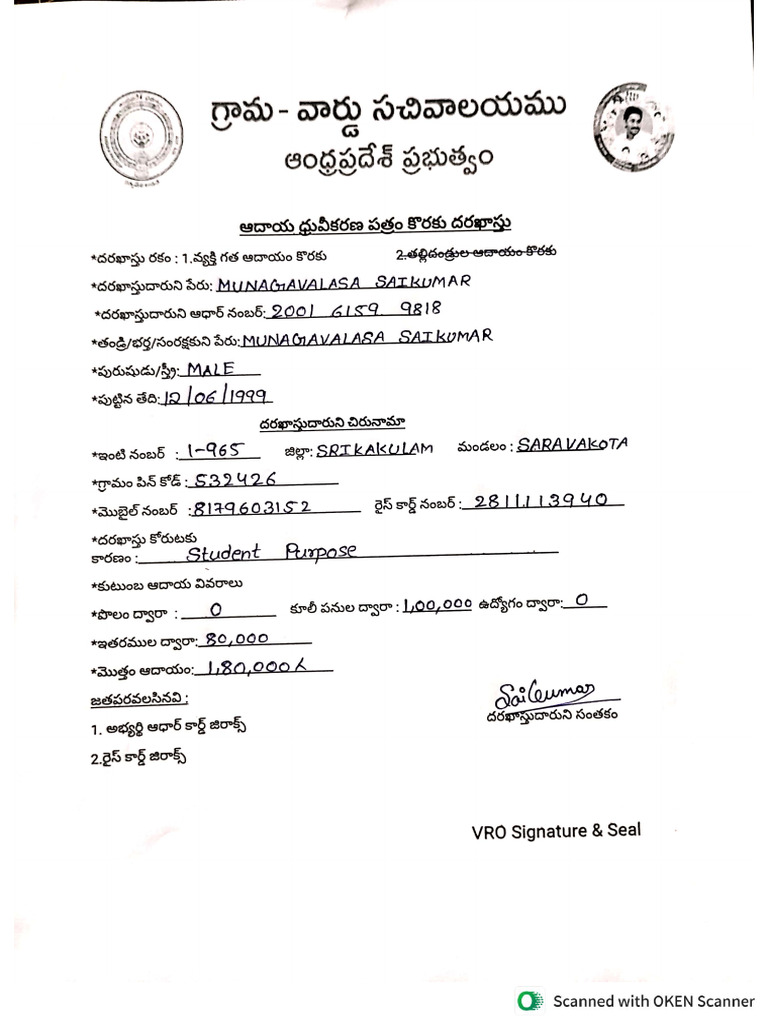 గ్రామ - వార్డు సచివాలయము
ఆంధ్రప్రదేశ్ ప్రభుత్వం
ఆదాయ ధ్రువీకరణ పత్రం కొరకు దరఖాస్తు
*దరఖాస్తు రకం : 1.వ్యక్తి గత ఆదాయం కొరకు 2.తల్లిదండ్రుల ఆదాయం కొరకు
*దరఖాస్తుదారుని పేరు: MUNAGAVALASA SAIKUMAR
*దరఖాస్తుదారుని ఆధార్ నంబర్: 2001 6159 9818
*తండ్రి/భర్త/సంరక్షకుని పేరు: MUNAGAVALASA SAIKUMAR
*పురుషుడు/స్త్రీ: MALE
*పుట్టిన తేది: 12/06/1999
దరఖాస్తుదారుని చిరునామా
*ఇంటి నంబర్ : 1-965 జిల్లా: SRIKAKULAM మండలం : SARAVAKOTA
*గ్రామం పిన్ కోడ్ : 532426
*మొబైల్ నంబర్ : 8179603152 రైస్ కార్డ్ నంబర్ : 2811113940
*దరఖాస్తు కోరుటకు
కారణం : Student Purpose
*కుటుంబ ఆదాయ వివరాలు
*పొలం ద్వారా : 0 కూలీ పనుల ద్వారా : 1,00,000 ఉద్యోగం ద్వారా: 0
*ఇతరముల ద్వారా: 80,000
*మొత్తం ఆదాయం: 1,80,000
జతపరవలసినవి :
Saikumar
దరఖాస్తుదారుని సంతకం
1. అభ్యర్థి ఆధార్ కార్డ్ జిరాక్స్
2.రైస్ కార్డ్ జిరాక్స్
VRO Signature & Seal
Scanned with OKEN Scanner